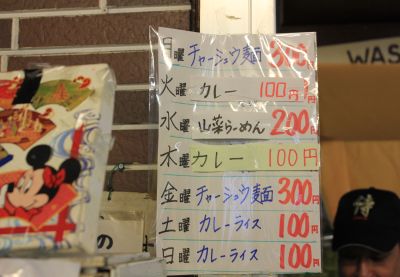 月曜 チャーシュウ麺 300円
火曜 カレー 100円
水曜 山菜らーめん 200円
木曜 カレー 100円
金曜 チャーシュウ麺 300円
土曜 カレーライス 100円
日曜 カレーライス 100円
WAS
の